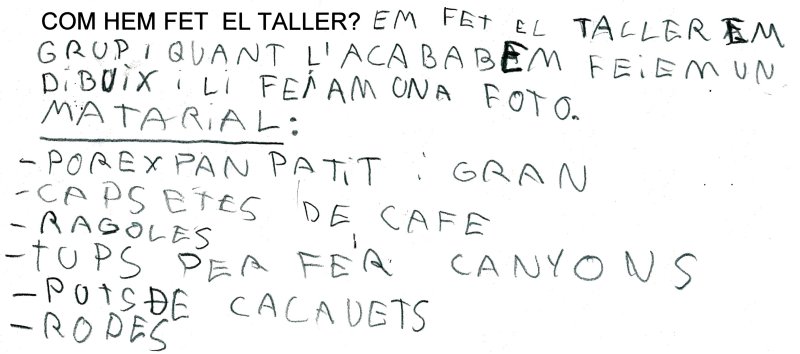 COM HEM FET EL TALLER? EM FEt EL TALLER EM
GRUP i QUANT L'ACABABEM FEiEM UN
DiBUiX i Li FEiAM ONA FOTO.
MATARiAL:
-POREXPAN PATiT i GRAN
-CAPSETES DE CAFE
-RAGOLES
-TUPS PER FER CANYONS
-POTS DE CACAUETS
-RODES